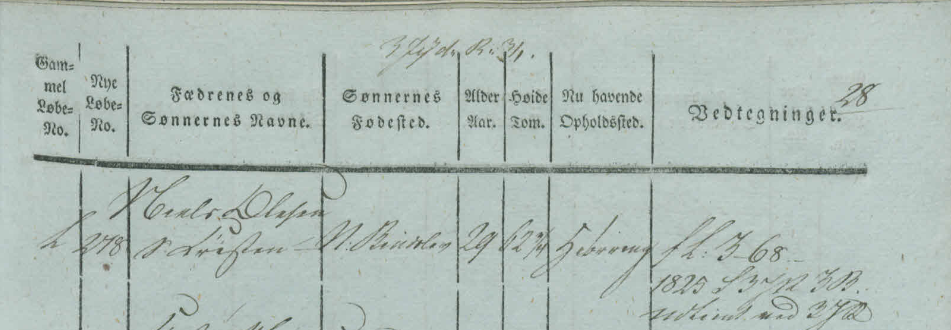 3 Jyd. R. 34.
28
Gam-
mel
Løbe-
No.
Nye
Løbe-
No.
Fædrenes og
Sønnernes Navne.
Sønnernes
Fødested.
Alder
Aar.
Høide
Tom.
Nu havende
Opholdssted.
Vedtegninger.
Niels Olesen
278
S. Christen
N. Rindslev
29
62¾
Hiörring
f L: 3-68
1825
3 B.
udtient ved 3